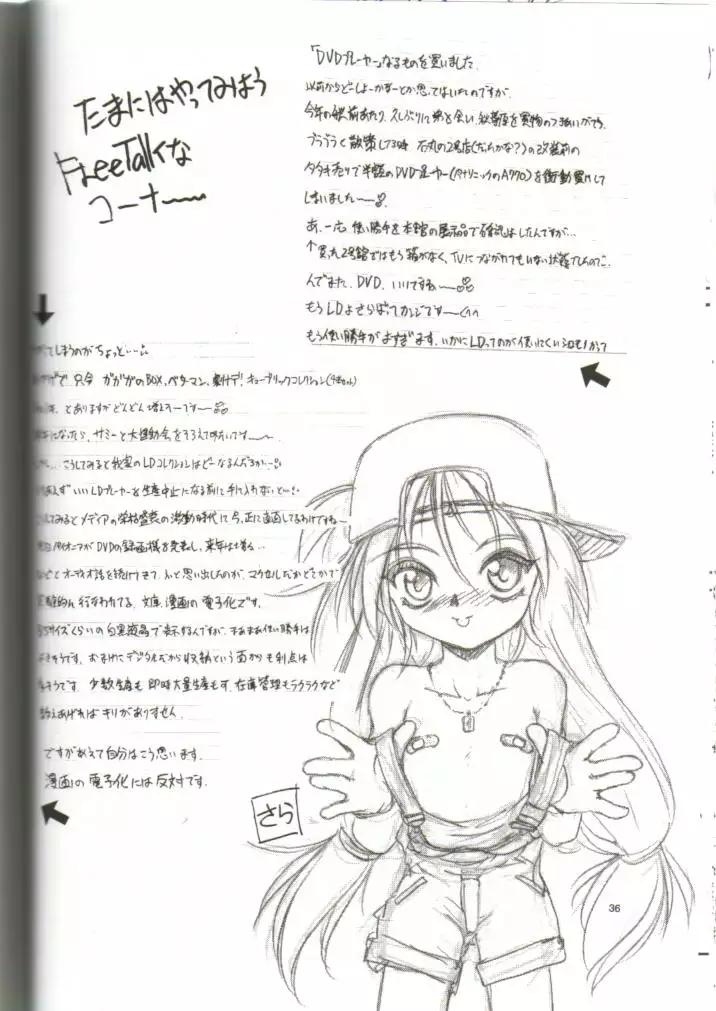 たまにはやってみはう
FreeTalkな
コーナー〜〜
「DVDプレーヤー」なるものを買いました。
以前からどーしよーかなーとか思ってはいたのですが
今年の秋前あたり、久しぶりに弟と会い、秋葉原を買物のつ
ブラブラと散策してる時 石丸の2号店(だったかな?)の改装前の
タタキ売りで半額のDVDプレーヤー(パナソニックのA)を衝動買いして
しまいました〜
あ、一応 使い勝手を本館の展示品で確認はしたんですが…
↑買った2号館ではもう箱がなく、TVにつながれてもいない状態でしたので、
んでまた、DVD、いいですね〜
もうLDよさらばってカンジです〜
もう使い勝手がよすぎます。いかにLDってのが使いにくいシロモノかって
ってしまうのがちょっと…
で 只今 ガガガのBOX、ベターマン、デ!キュービックコレクション
とありますがどんどん増えそーです〜
になったら、サミーと大運動会をそろえてみたいです〜
こうしてみると我家のLDコレクションはどーなるんだろか…
あえず いいLDプレーヤーを生産中止になる前に手に入れないと…
してみるとメディアの栄枯盛衰の激動時代に今、正に直面してるわけですね〜
パイオニアがDVDの録画機を発表し、来年は
などと オーディオ話を続けてきて ふと思い出したのが、マクセルだかどこかで
的に行なわれてる、文庫、漫画の電子化です。
サイズくらいの白黒液晶で表示するんですが、まあまあ使い勝手は
よさそうです。おまけにデジタルだから収納という面からも利点は
そうです。少数生産も即時大量生産も可、在庫管理もラクラクなど
数えあげればキリがありません。
ですがあえて自分はこう思います。
漫画の電子化には反対です。
さら
36